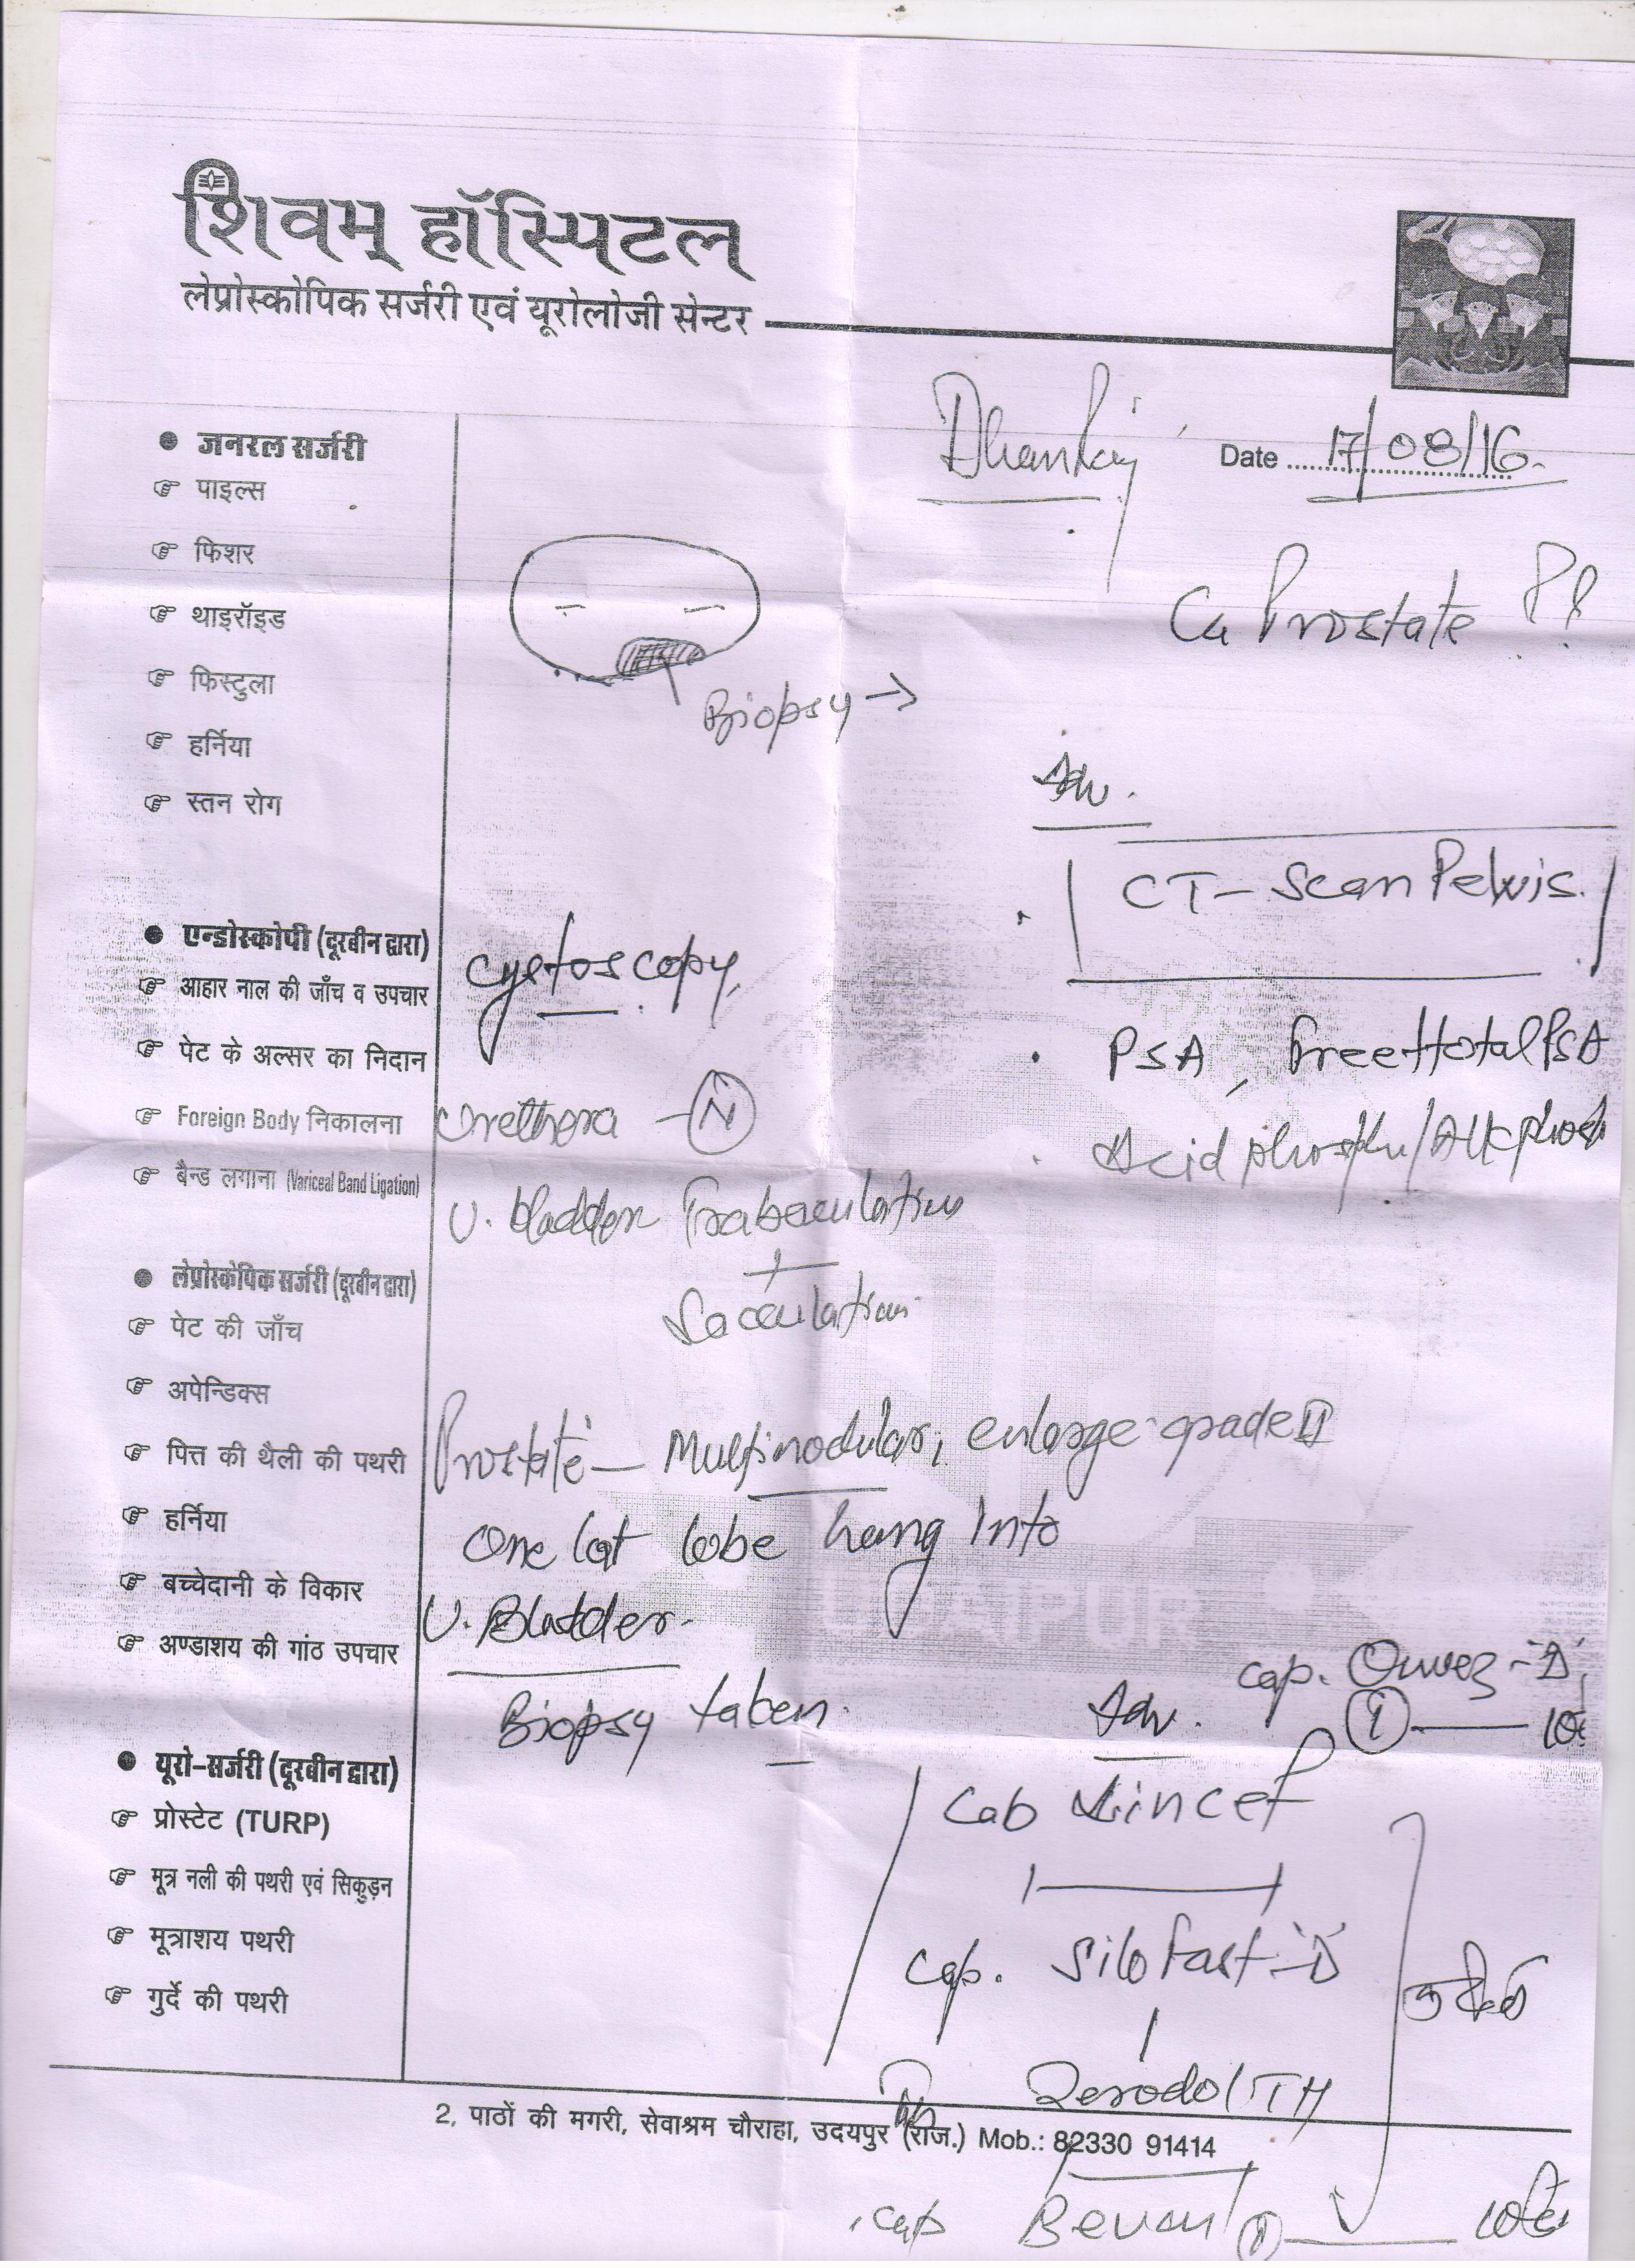 शिवम् हॉस्पिटल
लेप्रोस्कोपिक सर्जरी एवं यूरोलोजी सेन्टर
Dhanraj
Date 17/08/16.
Ca Prostate ??
Biopsy →
Adv.
CT-Scan Pelvis.
PSA, Free+total PSA
Acid phospha/Alk phosh
जनरल सर्जरी
पाइल्स
फिशर
थाइरॉइड
फिस्टुला
हर्निया
स्तन रोग
एन्डोस्कोपी (दूरबीन द्वारा)
आहार नाल की जाँच व उपचार
पेट के अल्सर का निदान
Foreign Body निकालना
बैन्ड लगाना (Variceal Band Ligation)
लेप्रोस्कोपिक सर्जरी (दूरबीन द्वारा)
पेट की जाँच
अपेन्डिक्स
पित्त की थैली की पथरी
हर्निया
बच्चेदानी के विकार
अण्डाशय की गांठ उपचार
यूरो-सर्जरी (दूरबीन द्वारा)
प्रोस्टेट (TURP)
मूत्र नली की पथरी एवं सिकुड़न
मूत्राशय पथरी
गुर्दे की पथरी
Cystoscopy
Urethera - N
U. bladder Trabaculation
+
Sacculation
Prostate - Multinodular, enlarge grade II
One lat lobe hang Into
U. Bladder.
Biopsy taken.
Adv.
Cap. Omez-D
1
Cab
Cap. Silofast-D
Zerodol TH
Cap Bevon
UDAIPUR
2, पाठों की मगरी, सेवाश्रम चौराहा, उदयपुर (राज.) Mob.: 82330 91414